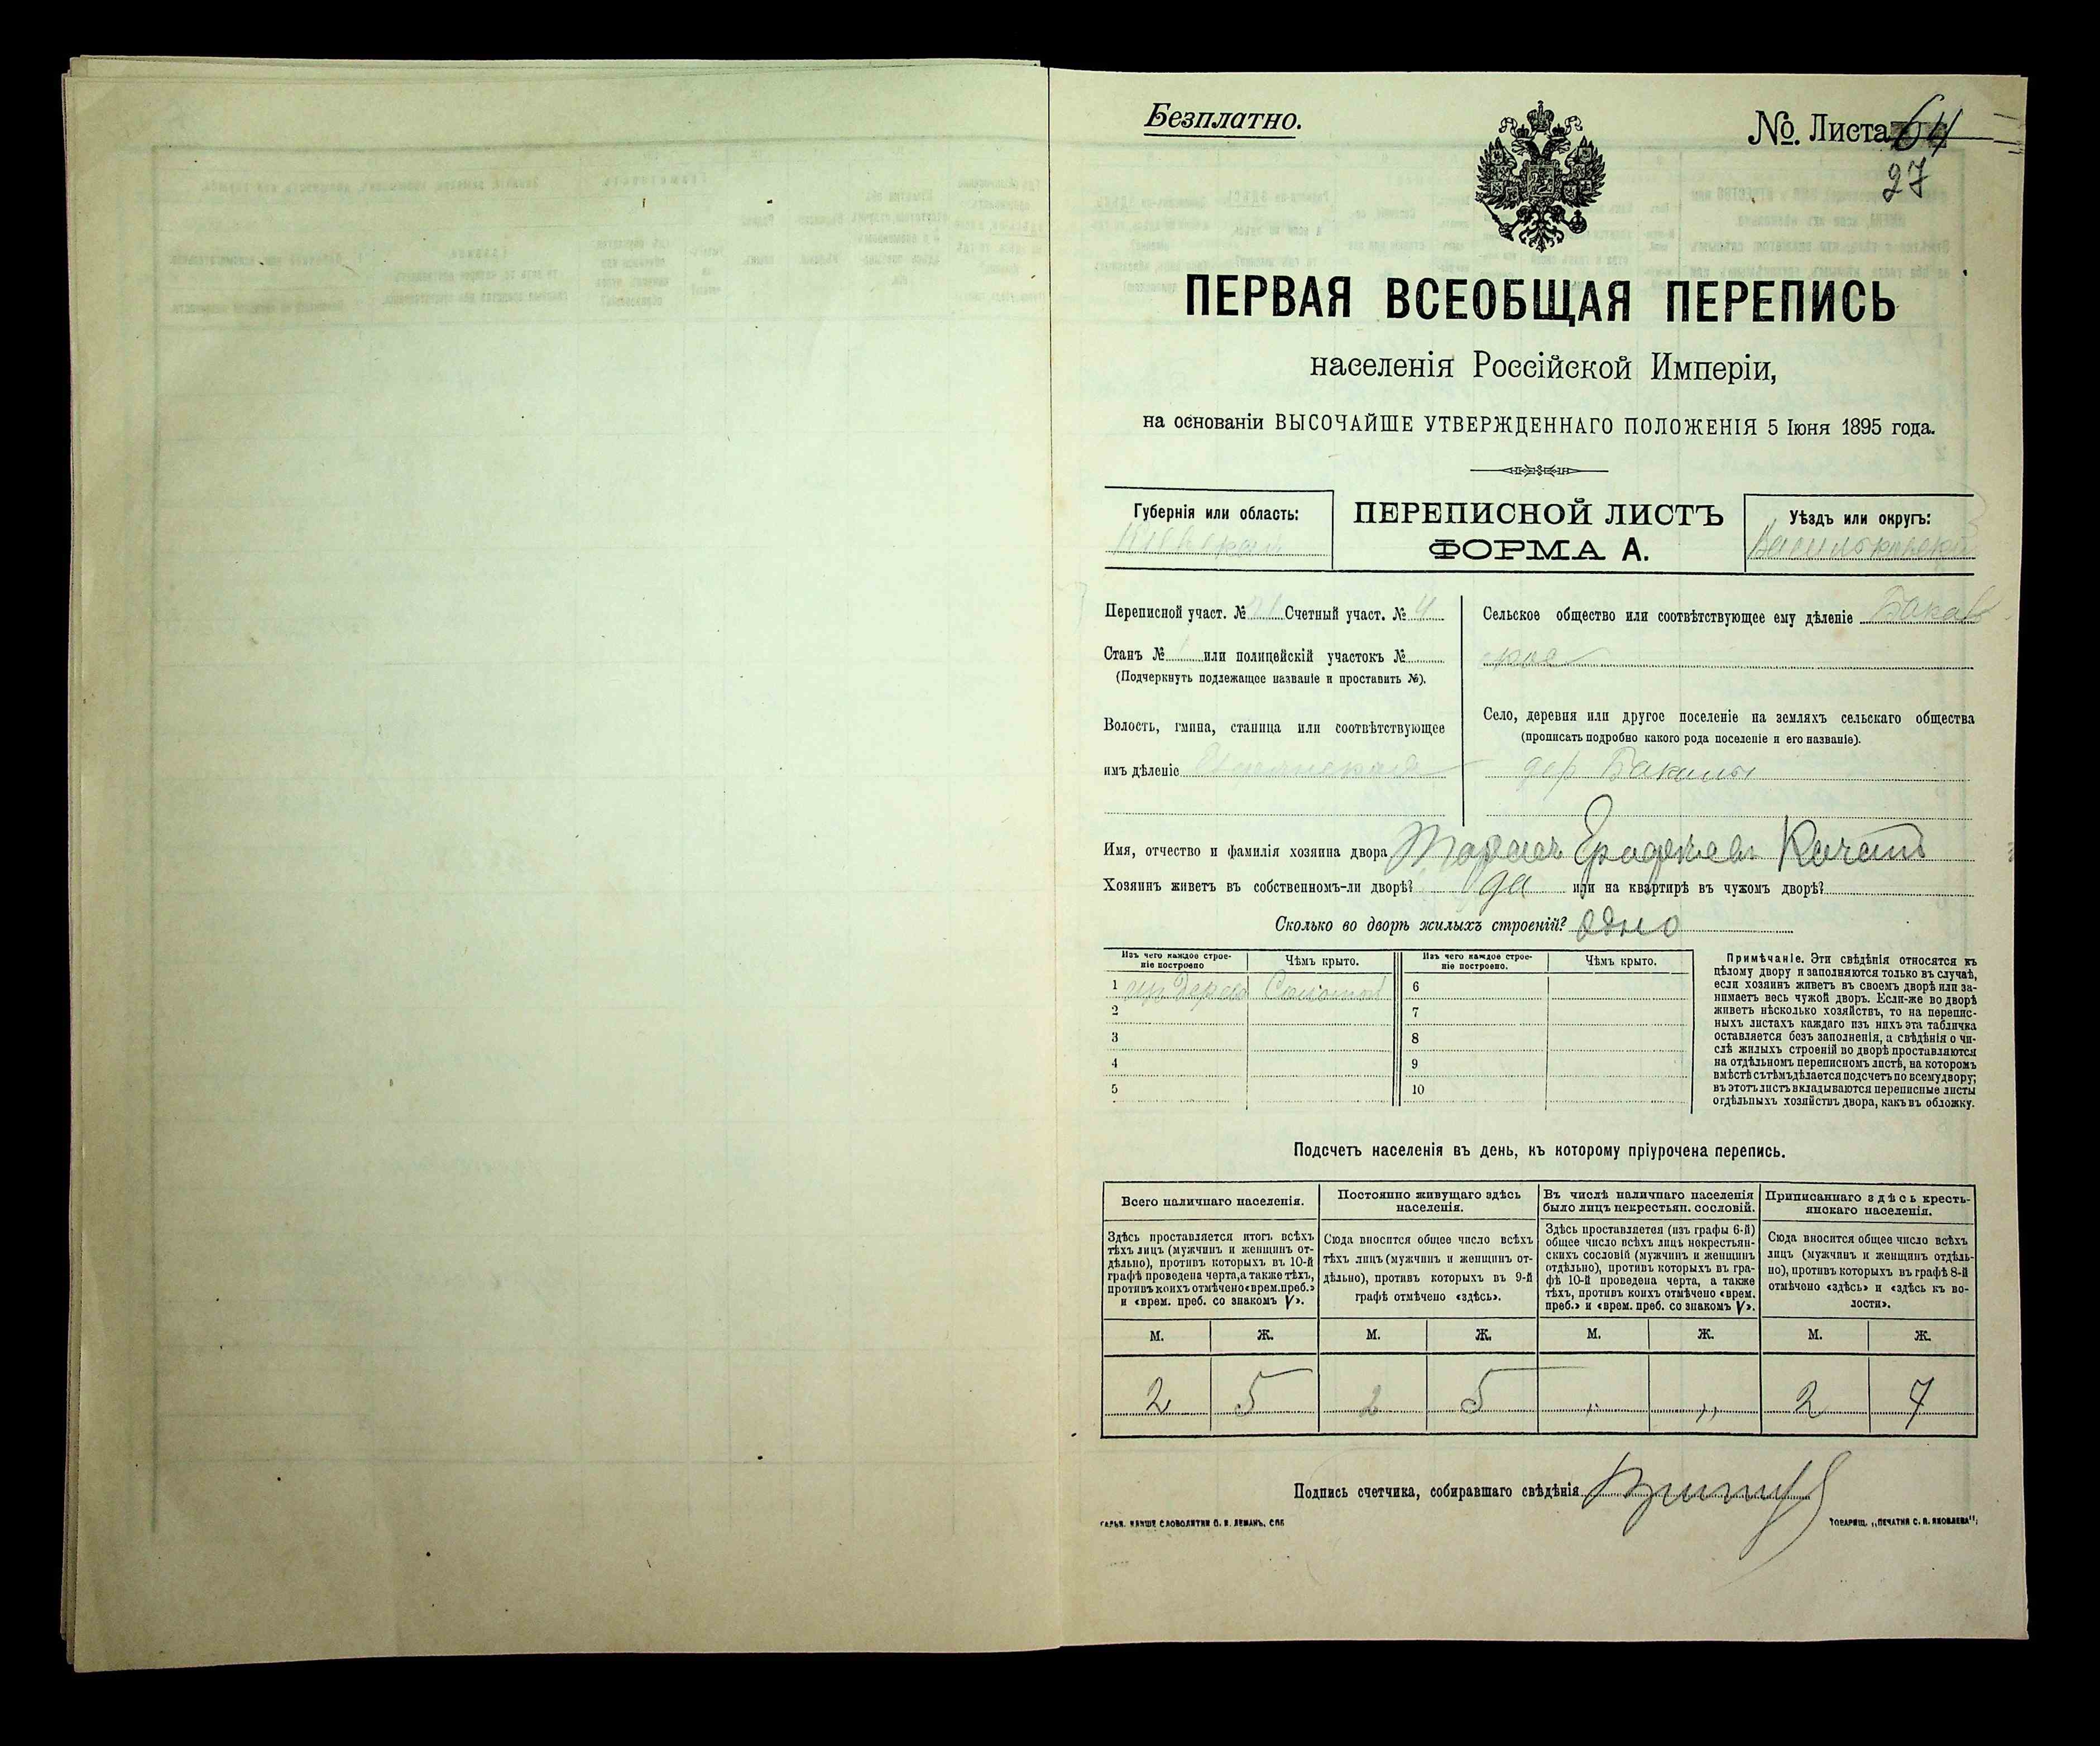 Безплатно.
№. Листа 64
27
ПЕРВАЯ ВСЕОБЩАЯ ПЕРЕПИСЬ
населенія Россійской Имперіи,
на основаніи ВЫСОЧАЙШЕ УТВЕРЖДЕННАГО ПОЛОЖЕНІЯ 5 Іюня 1895 года.
Губернія или область:
Кіевская
ПЕРЕПИСНОЙ ЛИСТЪ
ФОРМА А.
Уѣздъ или округъ:
Васильковскій
Переписной участ. № Счетный участ. № 4
Станъ № или полицейскій участокъ №
(Подчеркнуть подлежащее названіе и проставить №).
Волость, гмина, станица или соотвѣтствующее
имъ дѣленіе
Сельское общество или соотвѣтствующее ему дѣленіе
Село, деревня или другое поселеніе на земляхъ сельскаго общества
(прописать подробно какого рода поселеніе и его названіе).
дер
Имя, отчество и фамилія хозяина двора
Хозяинъ живетъ въ собственномъ-ли дворѣ? да или на квартирѣ въ чужомъ дворѣ?
Сколько во дворѣ жилыхъ строеній? одно
Изъ чего каждое строе-
ніе построено
Чѣмъ крыто.
Изъ чего каждое строе-
ніе построено.
Чѣмъ крыто.
1 Соломой
2
3
4
5
6
7
8
9
10
Примѣчаніе. Эти свѣдѣнія относятся къ
цѣлому двору и заполняются только въ случаѣ,
если хозяинъ живетъ въ своемъ дворѣ или за-
нимаетъ весь чужой дворъ. Если-же во дворѣ
живетъ нѣсколько хозяйствъ, то на перепис-
ныхъ листахъ каждаго изъ нихъ эта табличка
оставляется безъ заполненія, а свѣдѣнія о чи-
слѣ жилыхъ строеній во дворѣ проставляются
на отдѣльномъ переписномъ листѣ, на которомъ
вмѣстѣ съ тѣмъ дѣлается подсчетъ по всему двору;
въ этотъ листъ вкладываются переписные листы
отдѣльныхъ хозяйствъ двора, какъ въ обложку.
Подсчетъ населенія въ день, къ которому пріурочена перепись.
Всего наличнаго населенія.
Здѣсь проставляется итогъ всѣхъ
тѣхъ лицъ (мужчинъ и женщинъ от-
дѣльно), противъ которыхъ въ 10-й
графѣ проведена черта, а также тѣхъ,
противъ коихъ отмѣчено «врем. преб.»
и «врем. преб. со знакомъ V».
Постоянно живущаго здѣсь
населенія.
Сюда вносится общее число всѣхъ
тѣхъ лицъ (мужчинъ и женщинъ от-
дѣльно), противъ которыхъ въ 9-й
графѣ отмѣчено «здѣсь».
Въ числѣ наличнаго населенія
было лицъ некрестьян. сословій.
Здѣсь проставляется (изъ графы 6-й)
общее число всѣхъ лицъ некрестьян-
скихъ сословій (мужчинъ и женщинъ
отдѣльно), противъ которыхъ въ гра-
фѣ 10-й проведена черта, а также
тѣхъ, противъ коихъ отмѣчено «врем.
преб.» и «врем. преб. со знакомъ V».
Приписаннаго здѣсь кресть-
янскаго населенія.
Сюда вносится общее число всѣхъ
лицъ (мужчинъ и женщинъ отдѣль-
но), противъ которыхъ въ графѣ 8-й
отмѣчено «здѣсь» и «здѣсь въ во-
лости».
М. Ж. М. Ж. М. Ж. М. Ж.
2 5 2 5 „ „ 2 7
Подпись счетчика, собиравшаго свѣдѣнія
СЛОВОЛИТНИ О. И. ЛЕМАНЪ. СПБ
ТОВАРИЩ. „ПЕЧАТНЯ С. П. ЯКОВЛЕВА“